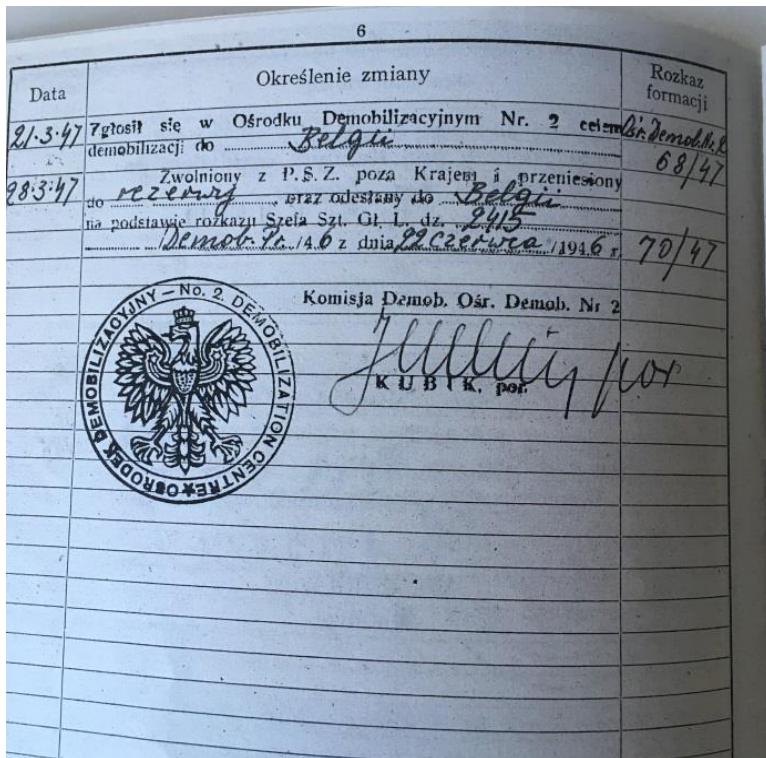 6
Data Określenie zmiany Rozkaz formacji
21.3.47 Zgłosił się w Ośrodku Demobilizacyjnym Nr. 2 celem Ośr. Demob. Nr. 2
demobilizacji do Belgii 68/47
28.3.47 Zwolniony z P.S.Z. poza Krajem i przeniesiony
do rezerwy, oraz odesłany do Belgii
na podstawie rozkazu Szefa Szt. Gł. L. dz. 2415
Demob. /46 z dnia 22 czerwca /1946 r. 70/47
Komisja Demob. Ośr. Demob. Nr 2
por
KUBIK, por.
OŚRODEK DEMOBILIZACYJNY — No. 2. DEMOBILIZATION CENTRE